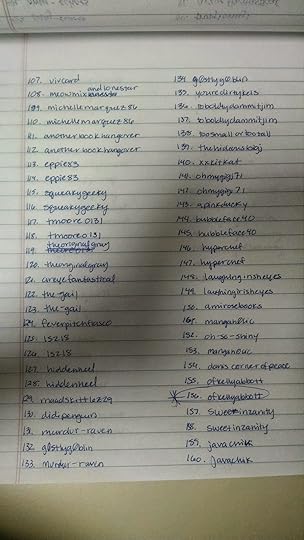 107. vivcard
108. meowmix andlonestar
109. michellemarquez86
110. michellemarquez86
111. anotherbookhangover
112. anotherbookhangover
113. eppie83
114. eppie83
115. squeakygeeky
116. squeakygeeky
117. tmoore0131
118. tmoore0131
119. theoriginalgray
120. theoriginalgray
121. areyefantastical
122. the-gail
123. the-gail
124. feverpitchfiasco
125. ls218
126. ls218
127. hiddenheel
128. hiddenheel
129. maudskittle229
130. didepenguin
131. murdur-raven
132. gøsthygøblin
133. murdur-raven
134. gøsthygøblin
135. youredirtykels
136. toboldlydamnitjim
137. toboldlydamnitjim
138. toosmallortootall
139. thehiddanstobj
140. xxkitkat
141. ohmygigi71
142. ohmygigi71
143. apinkducky
144. bubbleface40
145. bubbleface40
146. hyperchef
147. hyperchef
148. laughingirisheyes
149. laughingirisheyes
150. amirosebooks
151. mangaholic
152. oh-so-shiny
153. mangaholic
154. danscornerofpeace
155. ofkellyabbott
156. ofkellyabbott
157. sweetinzanity
158. sweetinzanity
159. javachik
160. javachik